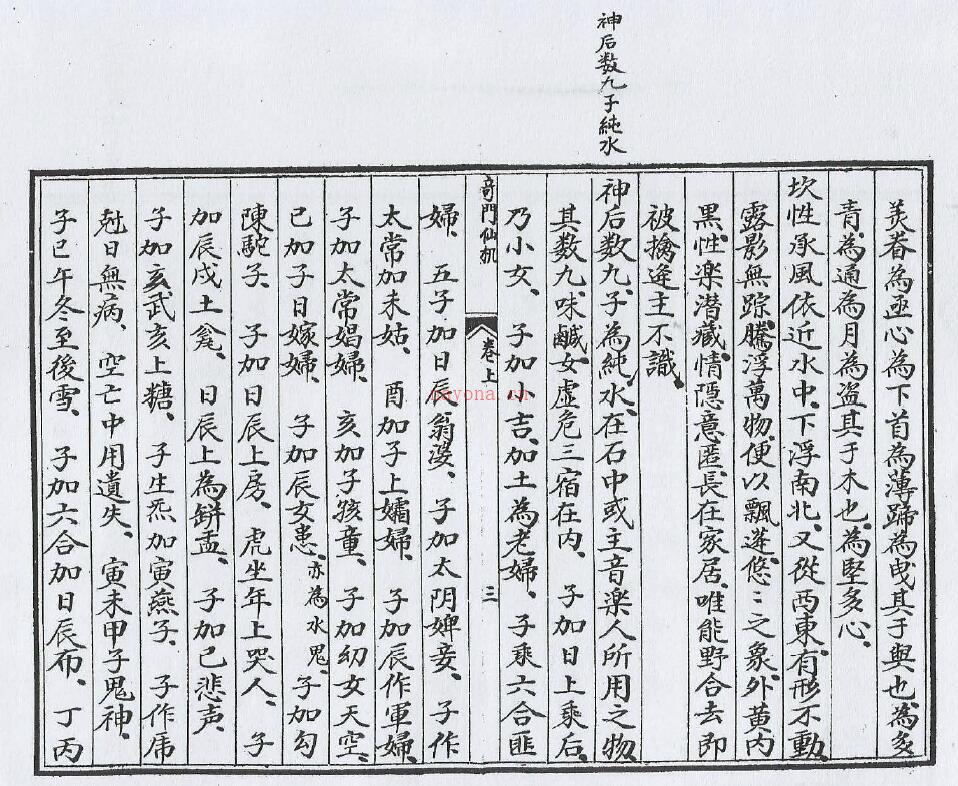 神后数九子純水
美眷為亟心為下首為薄蹄為曳其于輿也為多
青為通為月為盗其于木也為堅多心
坎性承風依近水中下浮南北又從西東有形不動
露影無踪騰浮萬物便以飄蓬悠〻之象外黄内
黑性楽潜藏情隠意匿長在家居唯能野合去即
被擒逄主不識
神后数九子為純水在石中或主音楽人所用之物
其数九味鹹女虚危三宿在内　子加日上乘后
乃小女　子加小吉加土為老婦　子乘六合匪
竒門仙机　卷上　三
婦　五子加日辰翁婆　子加太阴婢妾　子作
太常加未姑　酉加子上孀婦　子加辰作軍婦
子加太常娼婦　亥加子孩童　子加幼女天空
已加子日嫁婦　子加辰女患亦為水鬼子加勾
陳駝子　子加日辰上房　虎坐年上哭人　子
加辰戌土龛　日辰上為缾盂　子加已悲声
子加亥武亥上糖　子生炁加寅燕子　子作虎
尅日無病　空亡中用遺失　寅未甲子鬼神
子已午冬至後雪　子加六合加日辰布　丁丙